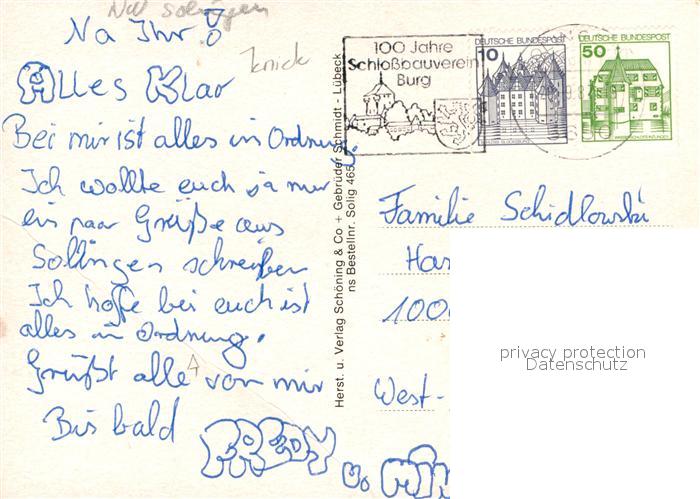 Na Ihr!
Alles Klar
Bei mir ist alles in Ordnung.
Ich wollte euch ja nur
ein paar Grüße aus
Sollingen schreiben
Ich hoffe bei euch ist
alles in Ordnung.
Grüßt alle von mir
Bis bald
FREDY u.
knick
Herst. u. Verlag Schöning & Co + Gebrüder Schmidt - Lübeck
ns Bestellnr. Solig 465
100 Jahre
Schloßbauverein
Burg
DEUTSCHE BUNDESPOST
10
DEUTSCHE BUNDESPOST
50
Familie Schidlowski
Has
1000
West-
privacy protection
Datenschutz